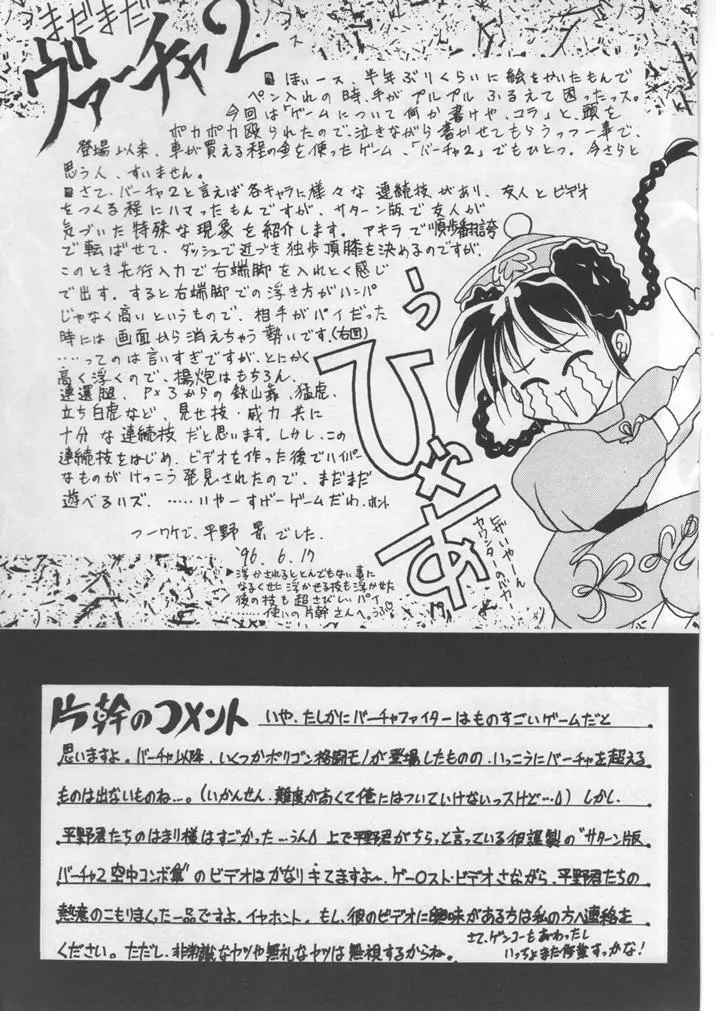 まだまだ
ヴァーチャ2
■ほぃース、半年ぶりくらいに絵をかいたもんで
ペン入れの時、手がプルプル ふるえて困ったっス。
今回は「ゲームについて何か書けや、コラ」と、頭を
ポカポカ殴られたので、泣きながら書かせてもらうっつー事で、
登場以来、車が買える程の金を使ったゲーム、「バーチャ2」でもひとつ。今さらと
思う人、すいません。
■さて、バーチャ2と言えば各キャラに様々な連続技があり、友人とビデオ
をつくる程にハマったもんですが、サターン版で友人が
気づいた特殊な現象を紹介します。アキラで順歩翻誇
で転ばせて、ダッシュで近づき独歩頂膝を決めるのですが、
このとき先行入力で右端脚を入れとく感じ
で出す。すると右端脚での浮き方がハンパ
じゃなく高いというもので、相手がパイだった
時には画面から消えちゃう勢いです。(右図)
……ってのは言いすぎですが、とにかく
高く浮くので、揚炮はもちろん、
連還腿、P×3からの鉄山靠、猛虎、
立ち白虎など、見せ技・威力共に
十分な連続技だと思います。しかし、この
連続技をはじめ、ビデオを作った後でハイパー
なものがけっこう発見されたので、まだまだ
遊べるハズ。……いやーすげーゲームだわ、ホント
つーワケで、平野 景でした。
'96.6.17
▶浮かされるととんでもない事に
なるくせに浮かせる技も浮かせた
後の技も超さびしいパイ
……使いの片幹さんへ。うふ♡
うっひゃあ
ヒザいやーん
カウンターのバカ
片幹のコメント
いや、たしかにバーチャファイターはものすごいゲームだと
思いますよ。バーチャ以降、いくつかポリゴン格闘モノが登場したものの、いっこうにバーチャを超える
ものは出ないものね…。(いかんせん、難度が高くて俺にはついていけないっスけど…) しかし、
平野君たちのはまり様はすごかった…うん 上で平野君がちらっと言っている彼謹製の"サターン版
バーチャ2 空中コンボ集"のビデオはかなりキてますよ〜、ゲー○スト・ビデオさながら、平野君たちの
熱意のこもりまくった一品ですよ、イヤホント。もし、彼のビデオに興味がある方は私の方へ連絡を
ください。ただし、非常識なヤツや無礼なヤツは無視するからね。
さて、ゲンコーもあがったし
いっちょまた修業すっかな!